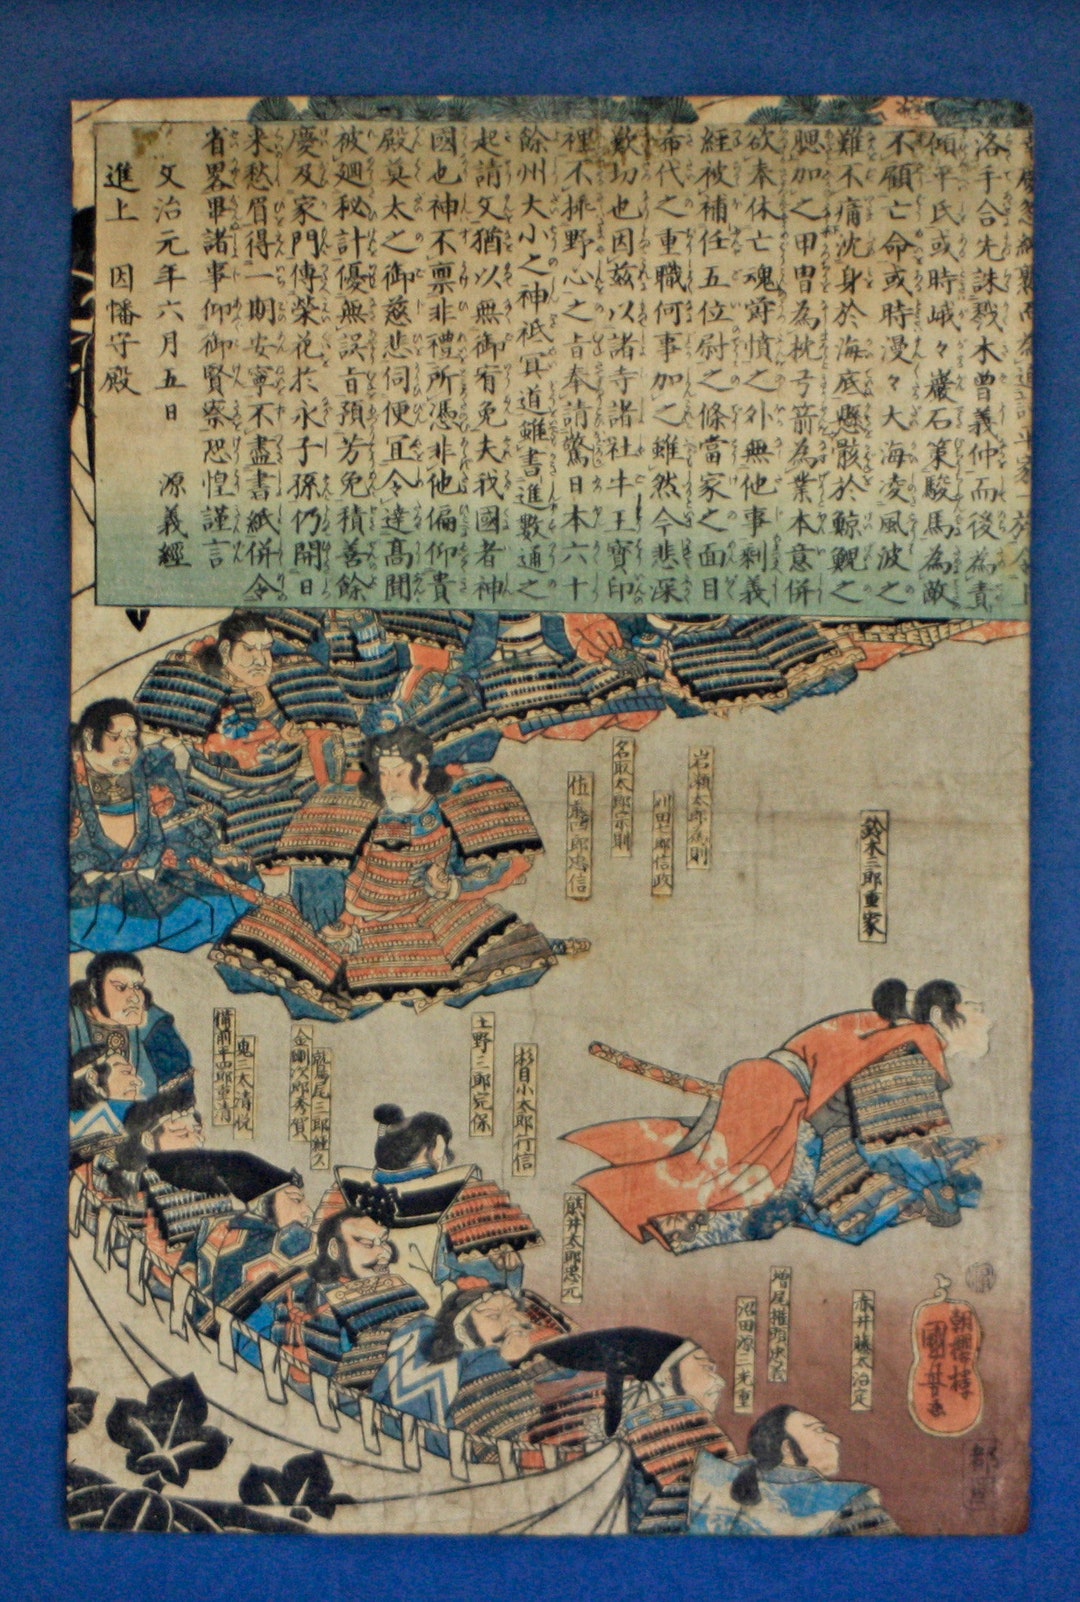 洛手合先誅戮木曽義仲而後為責
傾平氏或時峨々巌石策駿馬為敵
不顧亡命或時漫々大海凌風波之
難不痛沈身於海底懸骸於鯨鯢之
腮加之甲冑為枕弓箭為業本意併
欲奉休亡魂宵憤之外無他事剰義
経被補任五位尉之條當家之面目
希代之重職何事加之雖然今悲深
歎切也因茲以諸寺諸社牛王寳印
裡不挿野心之旨奉請驚日本六十
餘州大小之神祇冥道雖書進數通之
起請文猶以無御宥免夫我國者神
國也神不禀非禮所憑非他偏仰貴
殿莫太之御慈悲伺便宜令達高聞
被廻秘計優無誤旨預芳免積善餘
慶及家門傳榮花於永子孫仍開日
来愁眉得一期安寧不盡書紙併令
省畧畢諸事仰御賢察恐惶謹言
文治元年六月五日 源義經
進上 因幡守殿
岩瀬太郎為則
刈田七郎信政
名取太郎宗則
佐藤四郎忠信
鈴木三郎重家
杉目小太郎行信
土野三郎完保
鷲尾三郎経久
金剛次郎秀賀
鬼三太清悦
備前平四郎重清
熊井太郎忠元
赤井藤太治定
増尾権頭忠義
沼田源三光重
朝櫻樓
國芳画